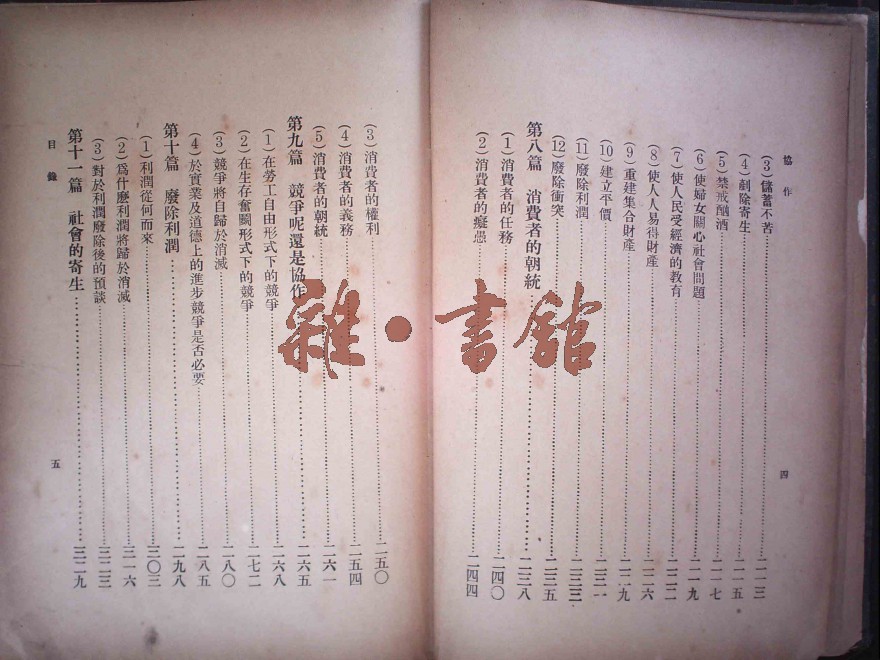 協作
(3)儲蓄不苦……二一三
(4)剷除寄生……二一五
(5)禁戒酗酒……二一七
(6)使婦女關心社會問題……二一九
(7)使人民受經濟的教育……二二二
(8)使人人易得財產……二二六
(9)重建集合財產……二二九
(10)建立平價……二三一
(11)廢除利潤……二三三
(12)廢除衝突……二三五
第八篇 消費者的朝統……二三八
(1)消費者的任務……二四〇
(2)消費者的癡愚……二四四
四
(3)消費者的權利……二五〇
(4)消費者的義務……二五四
(5)消費者的朝統……二六一
第九篇 競爭呢還是協作……二六五
(1)在勞工自由形式下的競爭……二六八
(2)在生存奮鬬形式下的競爭……二七二
(3)競爭將自歸於消滅……二八〇
(4)於實業及道德上的進步競爭是否必要……二八五
第十篇 廢除利潤……二九八
(1)利潤從何而來……三〇三
(2)爲什麽利潤將歸於消滅……三一六
(3)對於利潤廢除後的預談……三二三
第十一篇 社會的寄生……三二九
目錄
五
雜·書館